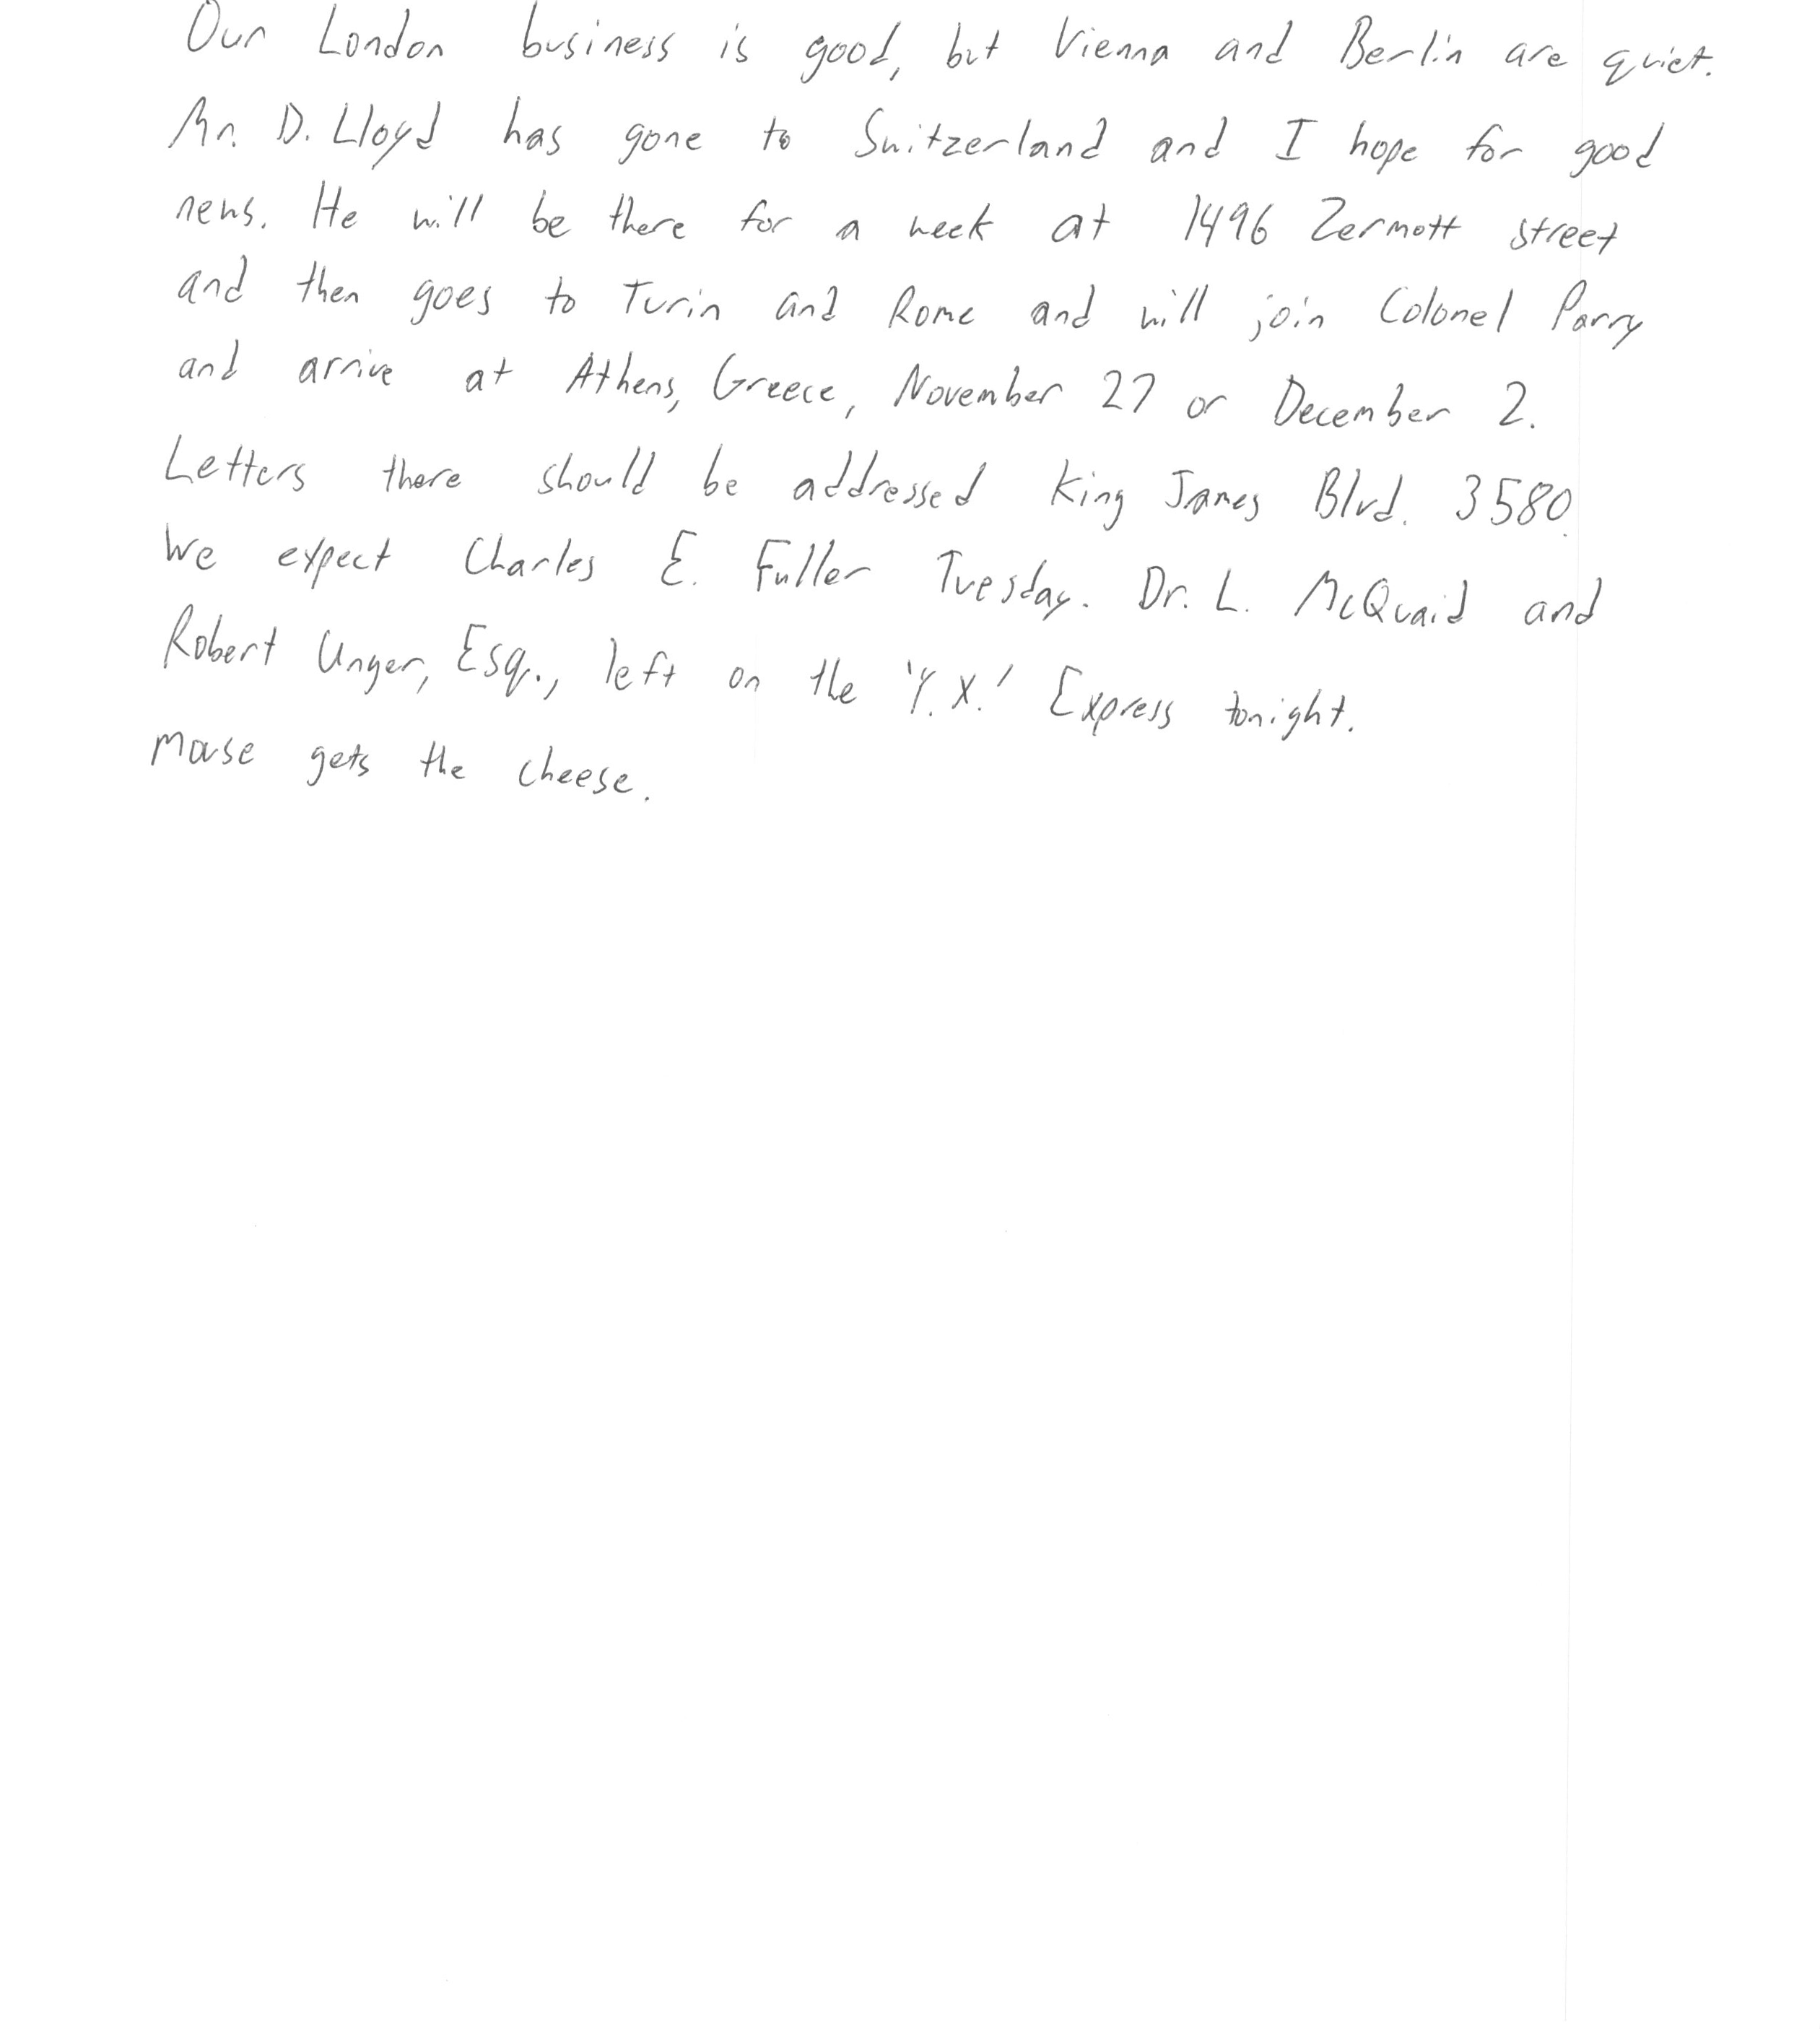 Our London business is good, but Vienna and Berlin are quiet.
Mr. D. Lloyd has gone to Switzerland and I hope for good
news. He will be there for a week at 1496 Zermott street
and then goes to Turin and Rome and will join Colonel Parry
and arrive at Athens, Greece, November 27 or December 2.
Letters there should be addressed King James Blvd. 3580.
We expect Charles E. Fuller Tuesday. Dr. L. McQuaid and
Robert Unger, Esq., left on the 'Y.X.' Express tonight.
Mouse gets the cheese.